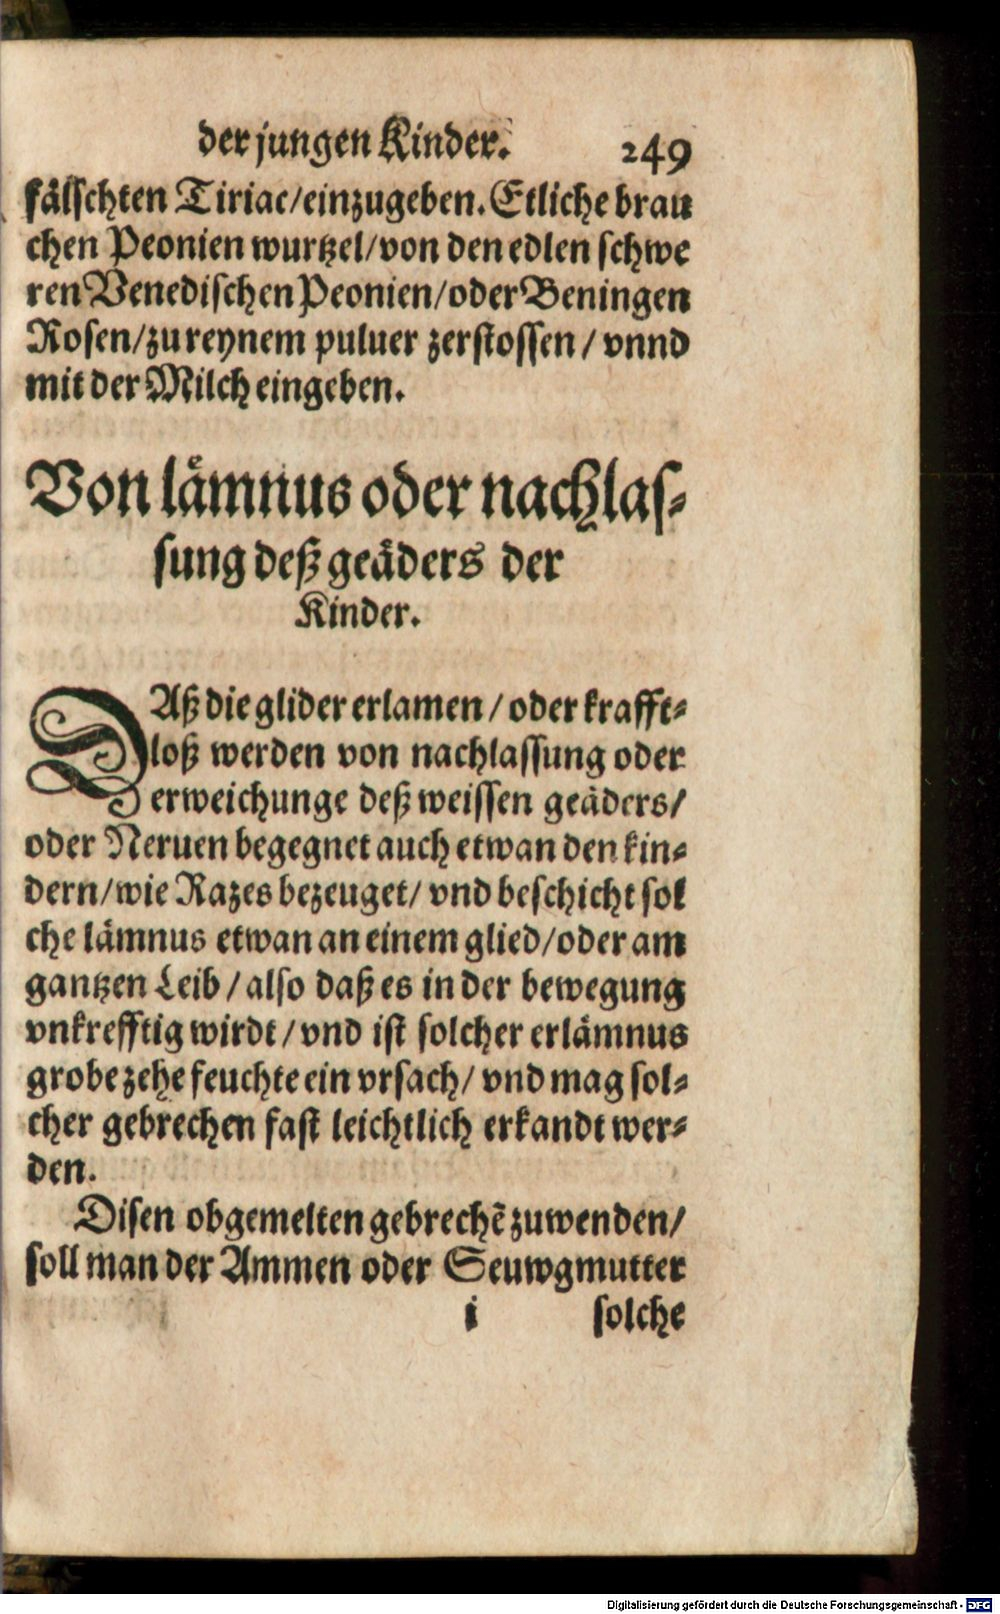 der jungen Kinder. 249
fälschten Tiriac/einzugeben. Etliche brau
chen Peonien wurtzel/von den edlen schwe
ren Venedischen Peonien/oder Beningen
Rosen/zu reynem puluer zerstossen/vnnd
mit der Milch eingeben.
Von lämnus oder nachlas-
sung deß geäders der
Kinder.
DAß die glider erlamen/oder krafft-
loß werden von nachlassung oder
erweichunge deß weissen geäders/
oder Neruen begegnet auch etwan den kin-
dern/wie Razes bezeuget/vnd beschicht sol
che lämnus etwan an einem glied/oder am
gantzen Leib/also daß es in der bewegung
vnkrefftig wirdt/vnd ist solcher erlämnus
grobe zehe feuchte ein vrsach/vnd mag sol-
cher gebrechen fast leichtlich erkandt wer-
den.
Disen obgemelten gebrechẽ zuwenden/
soll man der Ammen oder Seuwgmutter
i solche
Digitalisierung gefördert durch die Deutsche Forschungsgemeinschaft - DFG